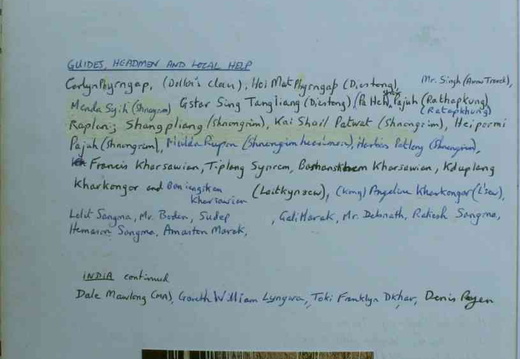 GUIDES, HEADMEN AND LOCAL HELP
Carlyn Phyrngap, (Doller's clan), Hoi Mat Phyrngap (Diostong), Mr. Singh (Arrow Travel),
Menda Syih (Shnongrim) Gstar Sing Tangliang (Diestong) Pa Heh, Pajuh (Rathapkung)
(Ratapkhung)
Raplang Shangpliang (Shnongrim), Kai Shorl Patwat (Shnongrim), Heipormi
Pajuh (Shnongrim), Rupon (Shnongrim Marbles Patleng (Shnongrim),
Francis Kharsawian, Tiplang Synrem, Kharsawian, Kduplang
Kharkongor and (Laitkynsew), (kmg) Angeline Kharkongor (L'sew),
Kharsawian
Lalit Sangma, Mr. Boden, Sudep , Gali Marak, Mr. Debnath, Rakesh Sangma,
Hemarson Sangma, Amarson Marak,
INDIA continued
Dale Mawlong (MN), Gareth William Lyngwa, Toki Franklyn Dkhar, Denis Rayen